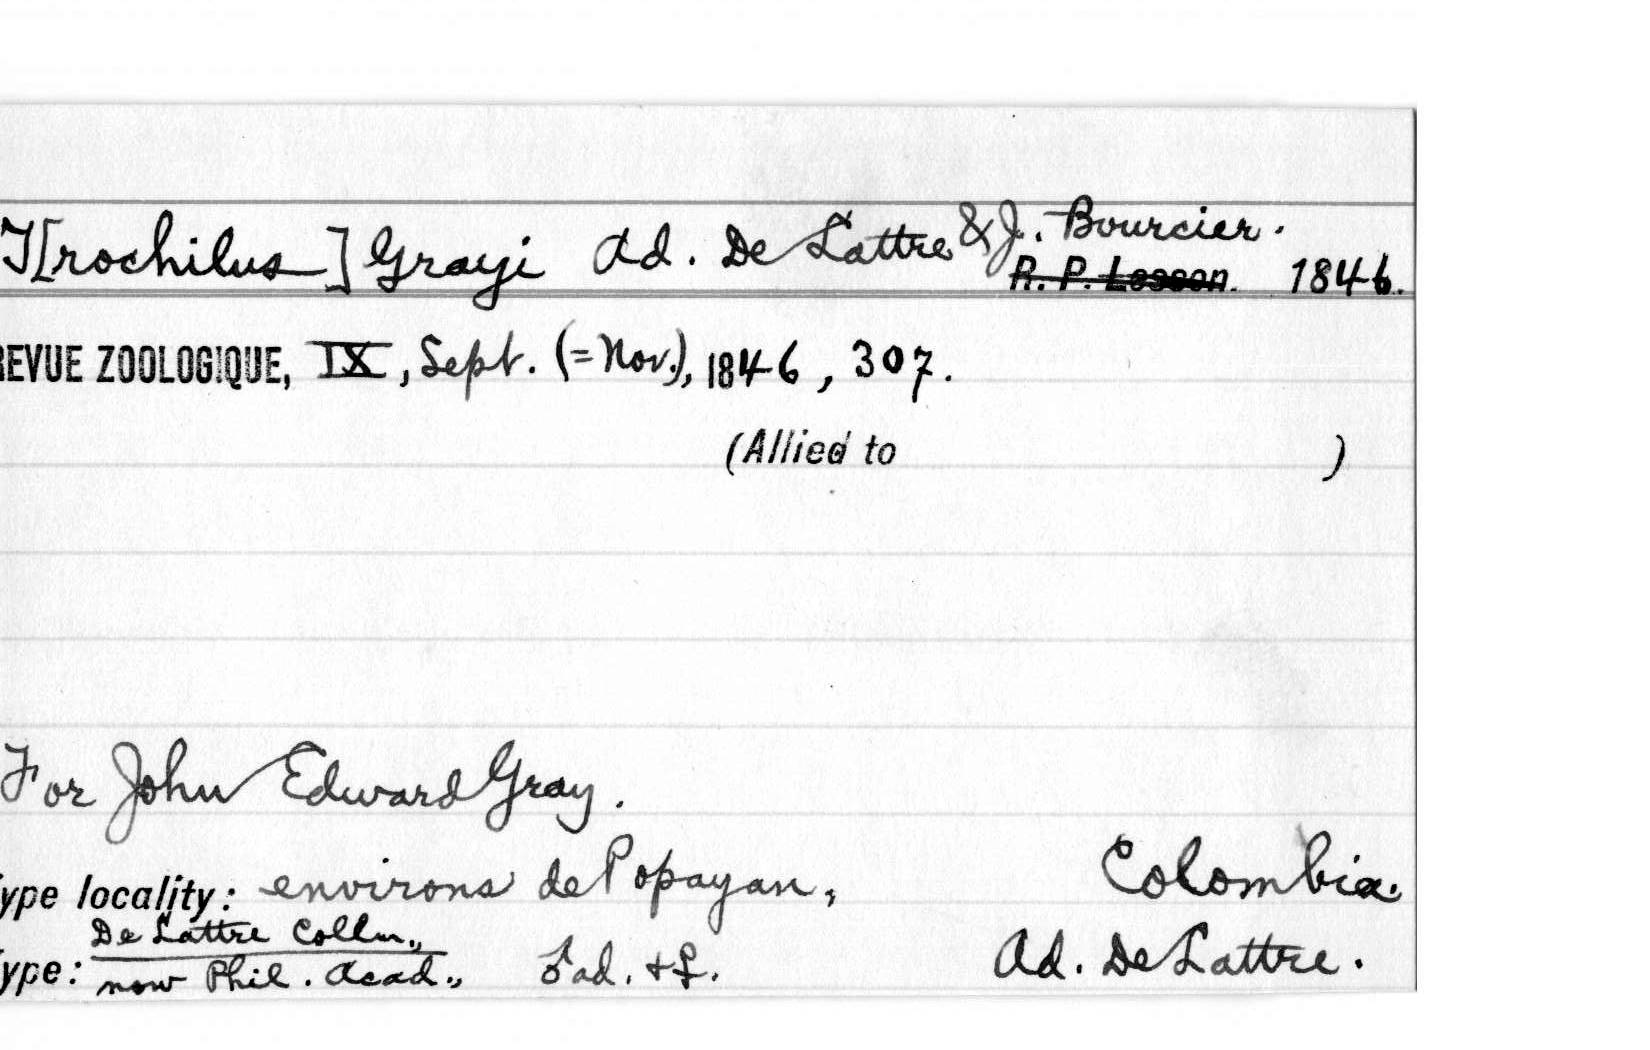 T[rochilus] Grayi Ad. De Lattre & J. Bourcier.
R. P. Lesson. 1846.
REVUE ZOOLOGIQUE, IX, Sept. (=Nov.), 1846, 307.
(Allied to )
For John Edward Gray.
ype locality: environs de Popayan, Colombia.
De Lattre Colln.,
ype: now Phil. Acad., ♂ ad. + ♀. Ad. De Lattre.